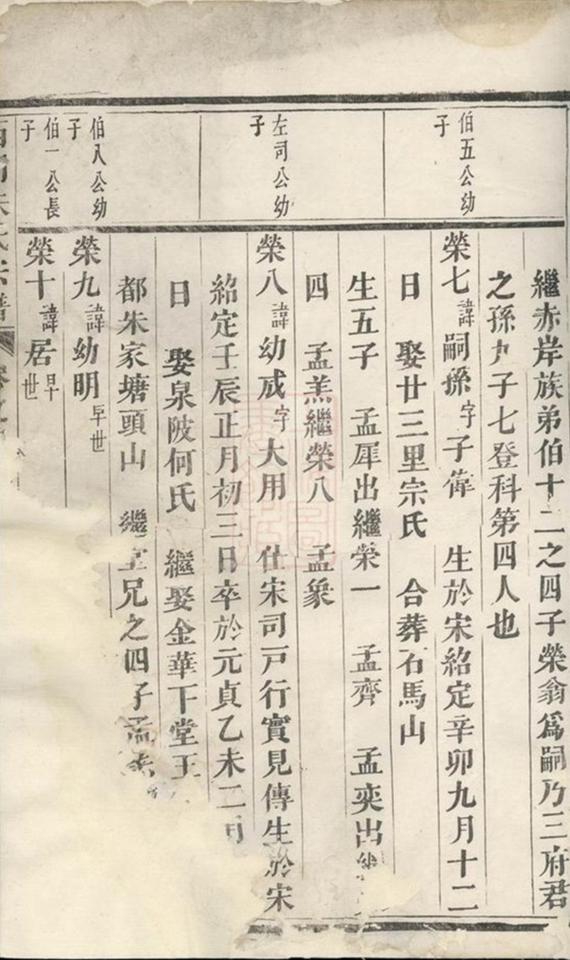 繼赤岸族弟伯十二之四子榮翁爲嗣乃三府君
之孫九子七登科第四人也
伯五公幼子
榮七諱嗣孫字子偉 生於宋紹定辛卯九月十二
日 娶廿三里宗氏 合葬石馬山
生五子 孟犀出繼榮一 孟齊 孟奕出
四 孟羔繼榮八 孟象
左司公幼子
榮八諱幼成字大用 仕宋司戸行實見傳生於宋
紹定壬辰正月初三日卒於元貞乙未二
日 娶泉陂何氏 繼娶金華下堂王
都朱家塘頭山 繼堂兄之四子孟
伯八公幼子
榮九諱幼明早世
伯一公長子
榮十諱居早世
氏宗譜